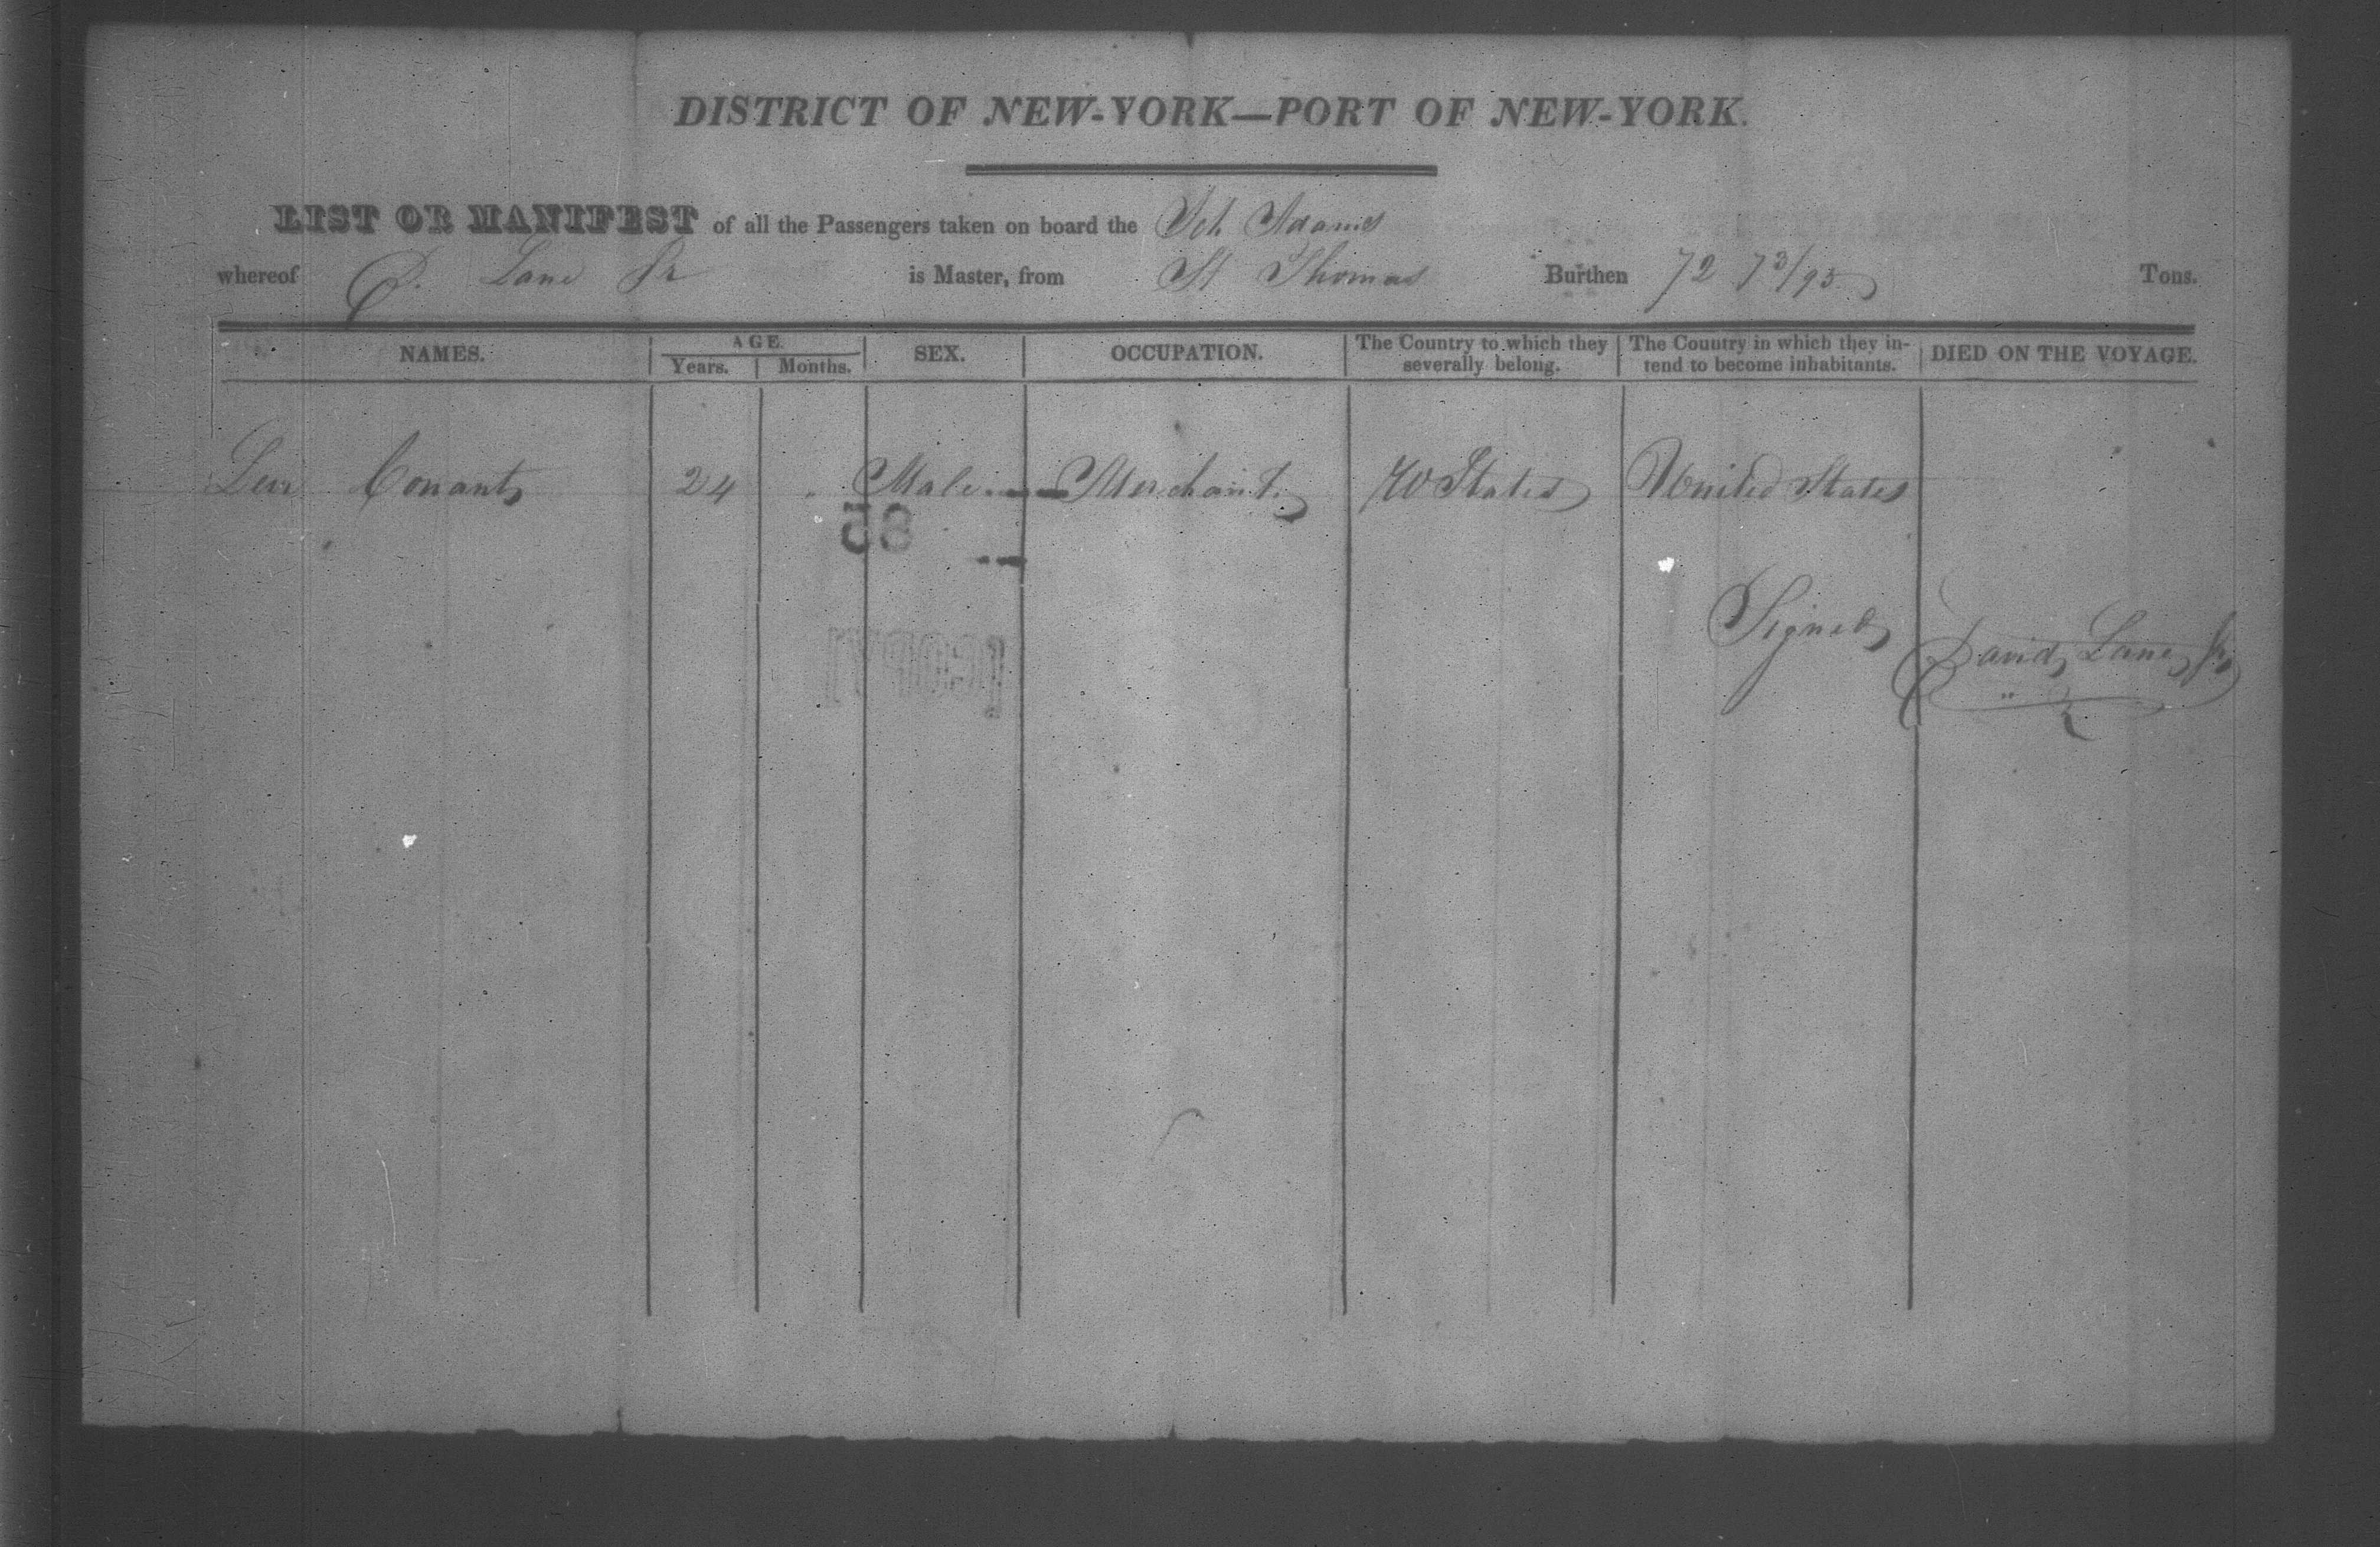 DISTRICT OF NEW-YORK—PORT OF NEW-YORK.
LIST OR MANIFEST of all the Passengers taken on board the Sch Adams
whereof D. Lane Jr is Master, from St Thomas Burthen 72 73/95 Tons.
NAMES. AGE. Years. Months. SEX. OCCUPATION. The Country to which they severally belong. The Country in which they intend to become inhabitants. DIED ON THE VOYAGE.
Levi Conant 24 Male Merchant U States United States
58
Signed David Lane Jr